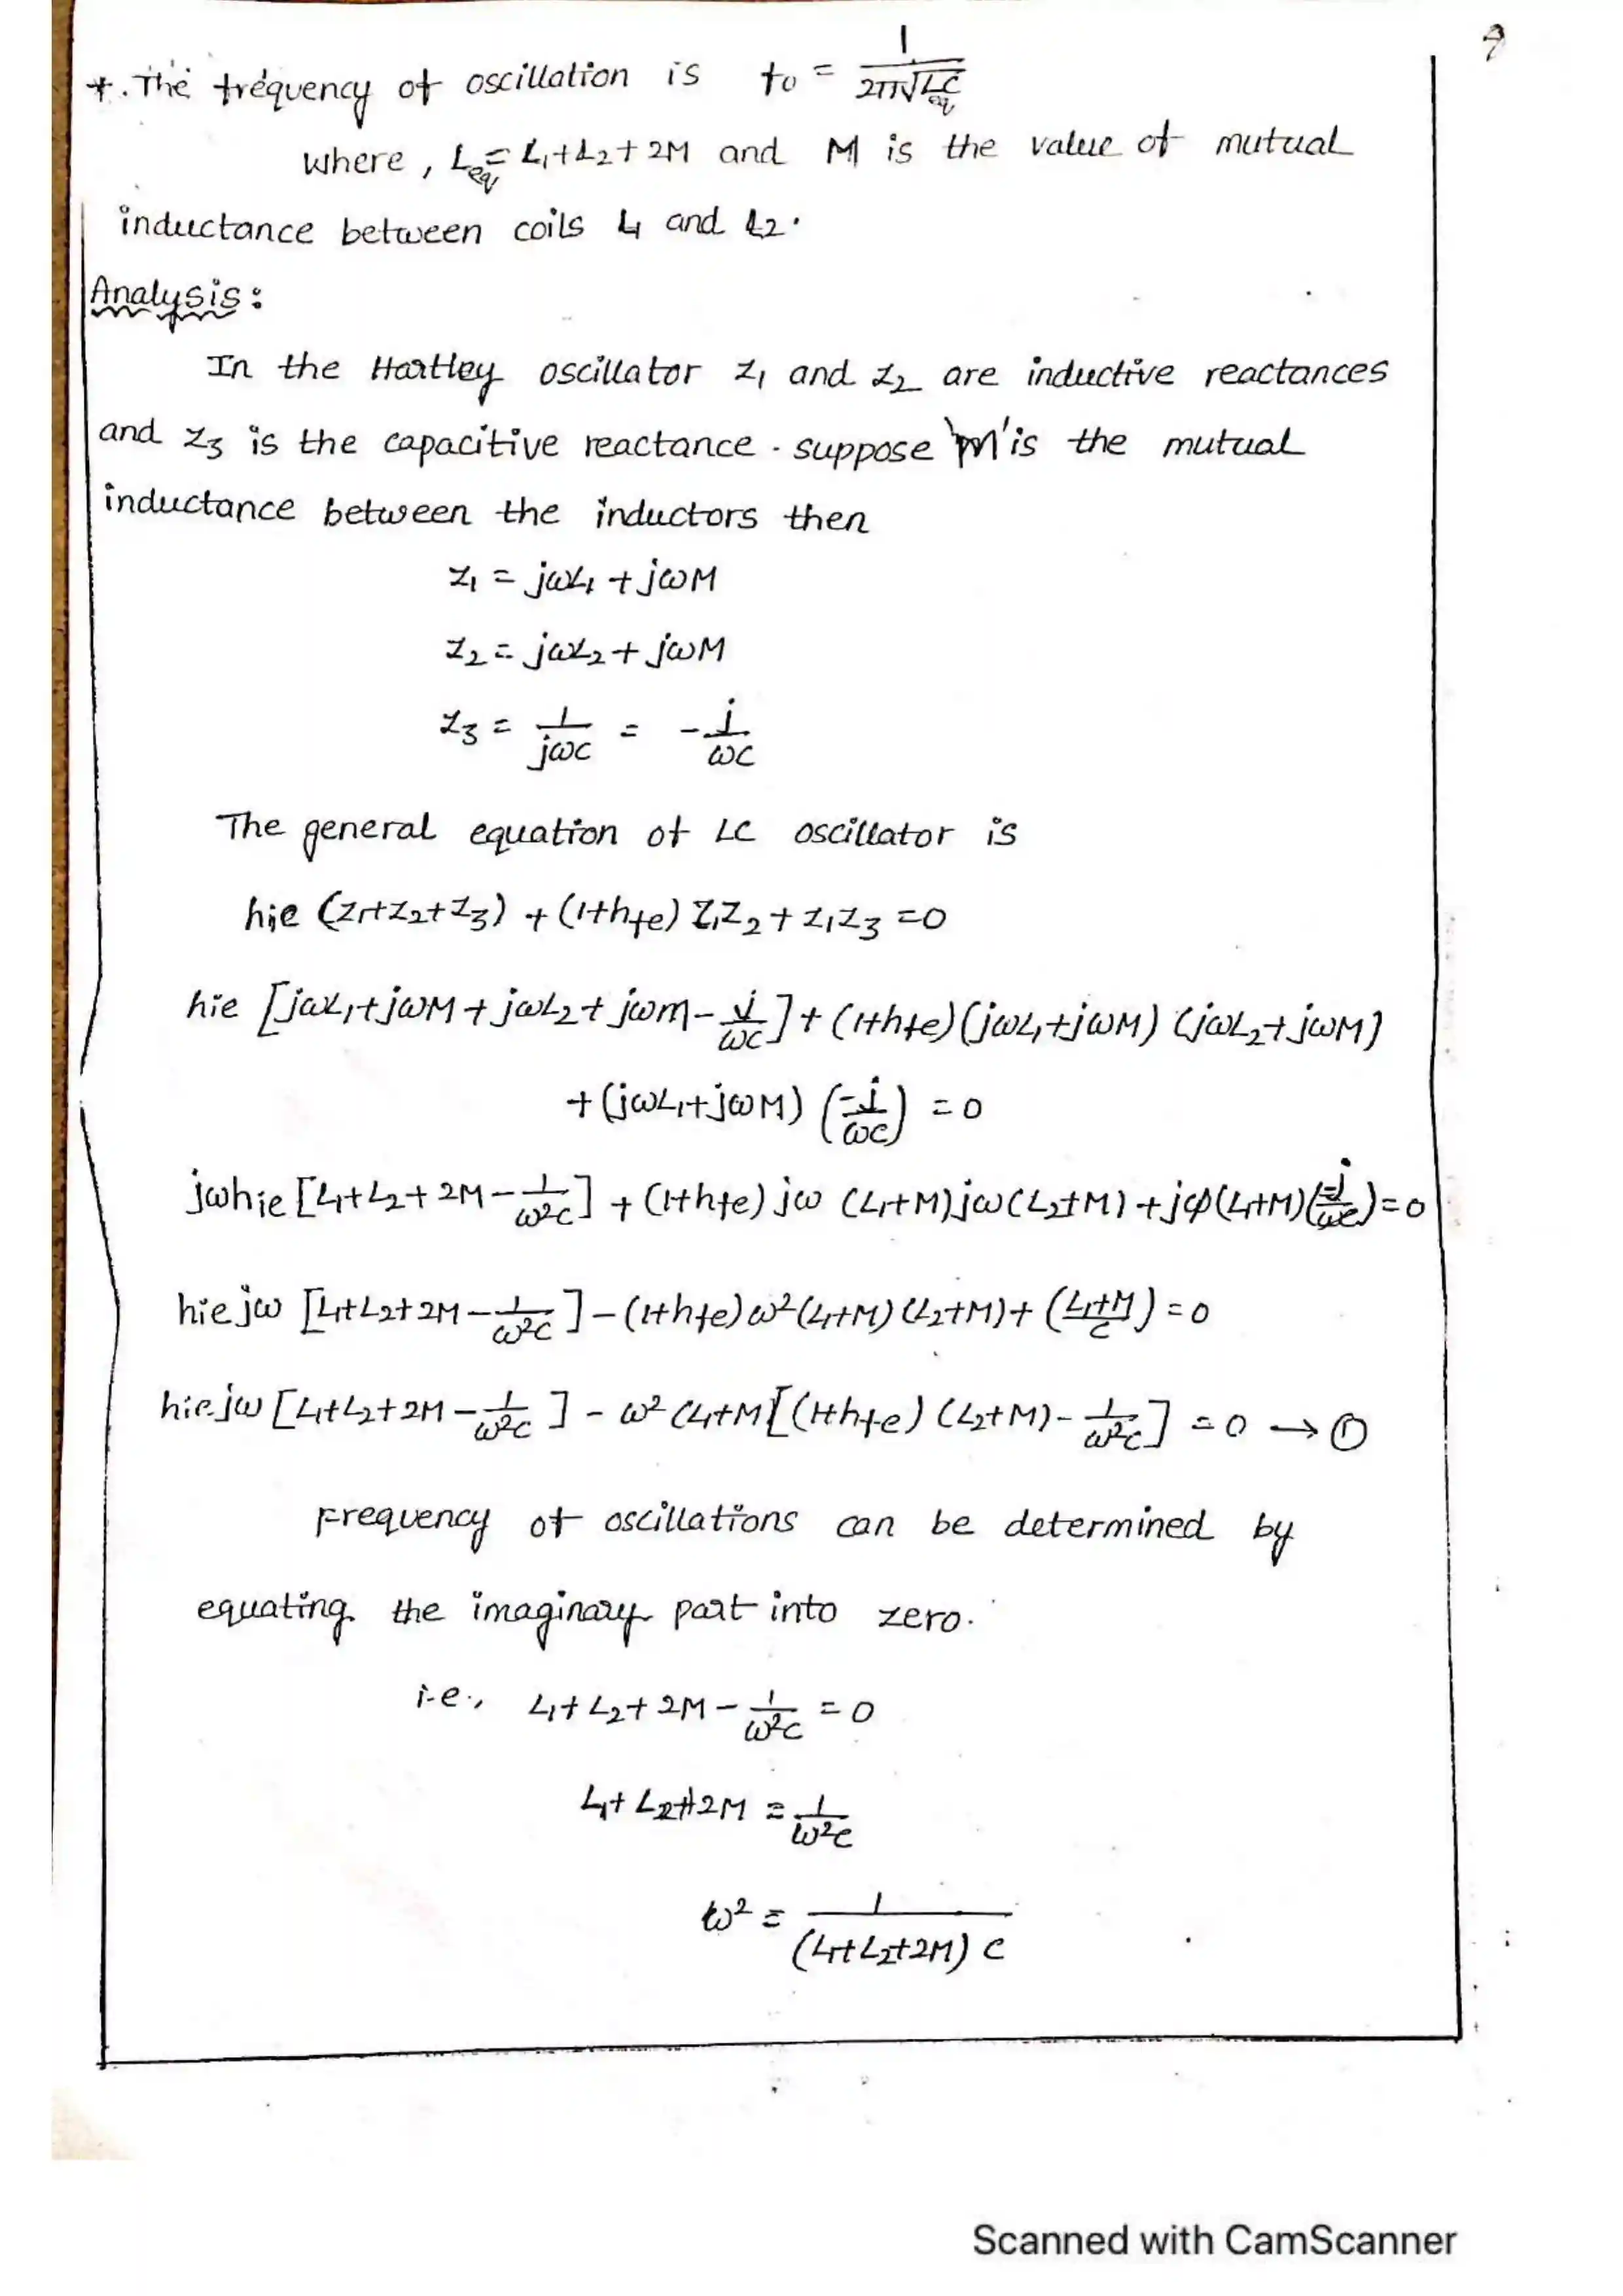 9
*. The frequency of oscillation is f₀ = 1/(2π√(L_eq C))
where, L_eq = L₁+L₂+2M and M is the value of mutual
inductance between coils L₁ and L₂.
Analysis:
In the Hartley oscillator Z₁ and Z₂ are inductive reactances
and Z₃ is the capacitive reactance. suppose 'M' is the mutual
inductance between the inductors then
Z₁ = jωL₁ + jωM
Z₂ = jωL₂ + jωM
Z₃ = 1/(jωC) = -j/(ωC)
The general equation of LC oscillator is
hie (Z₁+Z₂+Z₃) + (1+hfe) Z₁Z₂ + Z₁Z₃ = 0
hie [jωL₁+jωM + jωL₂+ jωM - j/(ωC)] + (1+hfe)(jωL₁+jωM) (jωL₂+jωM)
+ (jωL₁+jωM) (-j/(ωC)) = 0
jωhie [L₁+L₂+2M - 1/(ω²C)] + (1+hfe) jω (L₁+M)jω(L₂+M) + jω(L₁+M)(-j/(ωC)) = 0
hiejω [L₁+L₂+2M - 1/(ω²C)] - (1+hfe) ω²(L₁+M) (L₂+M) + ((L₁+M)/C) = 0
hiejω [L₁+L₂+2M - 1/(ω²C)] - ω² (L₁+M[(1+hfe) (L₂+M) - 1/(ω²C)] = 0 → ①
Frequency of oscillations can be determined by
equating the imaginary part into zero.
i.e., L₁+L₂+2M - 1/(ω²C) = 0
L₁+L₂+2M = 1/(ω²C)
ω² = 1/((L₁+L₂+2M) C)
Scanned with CamScanner